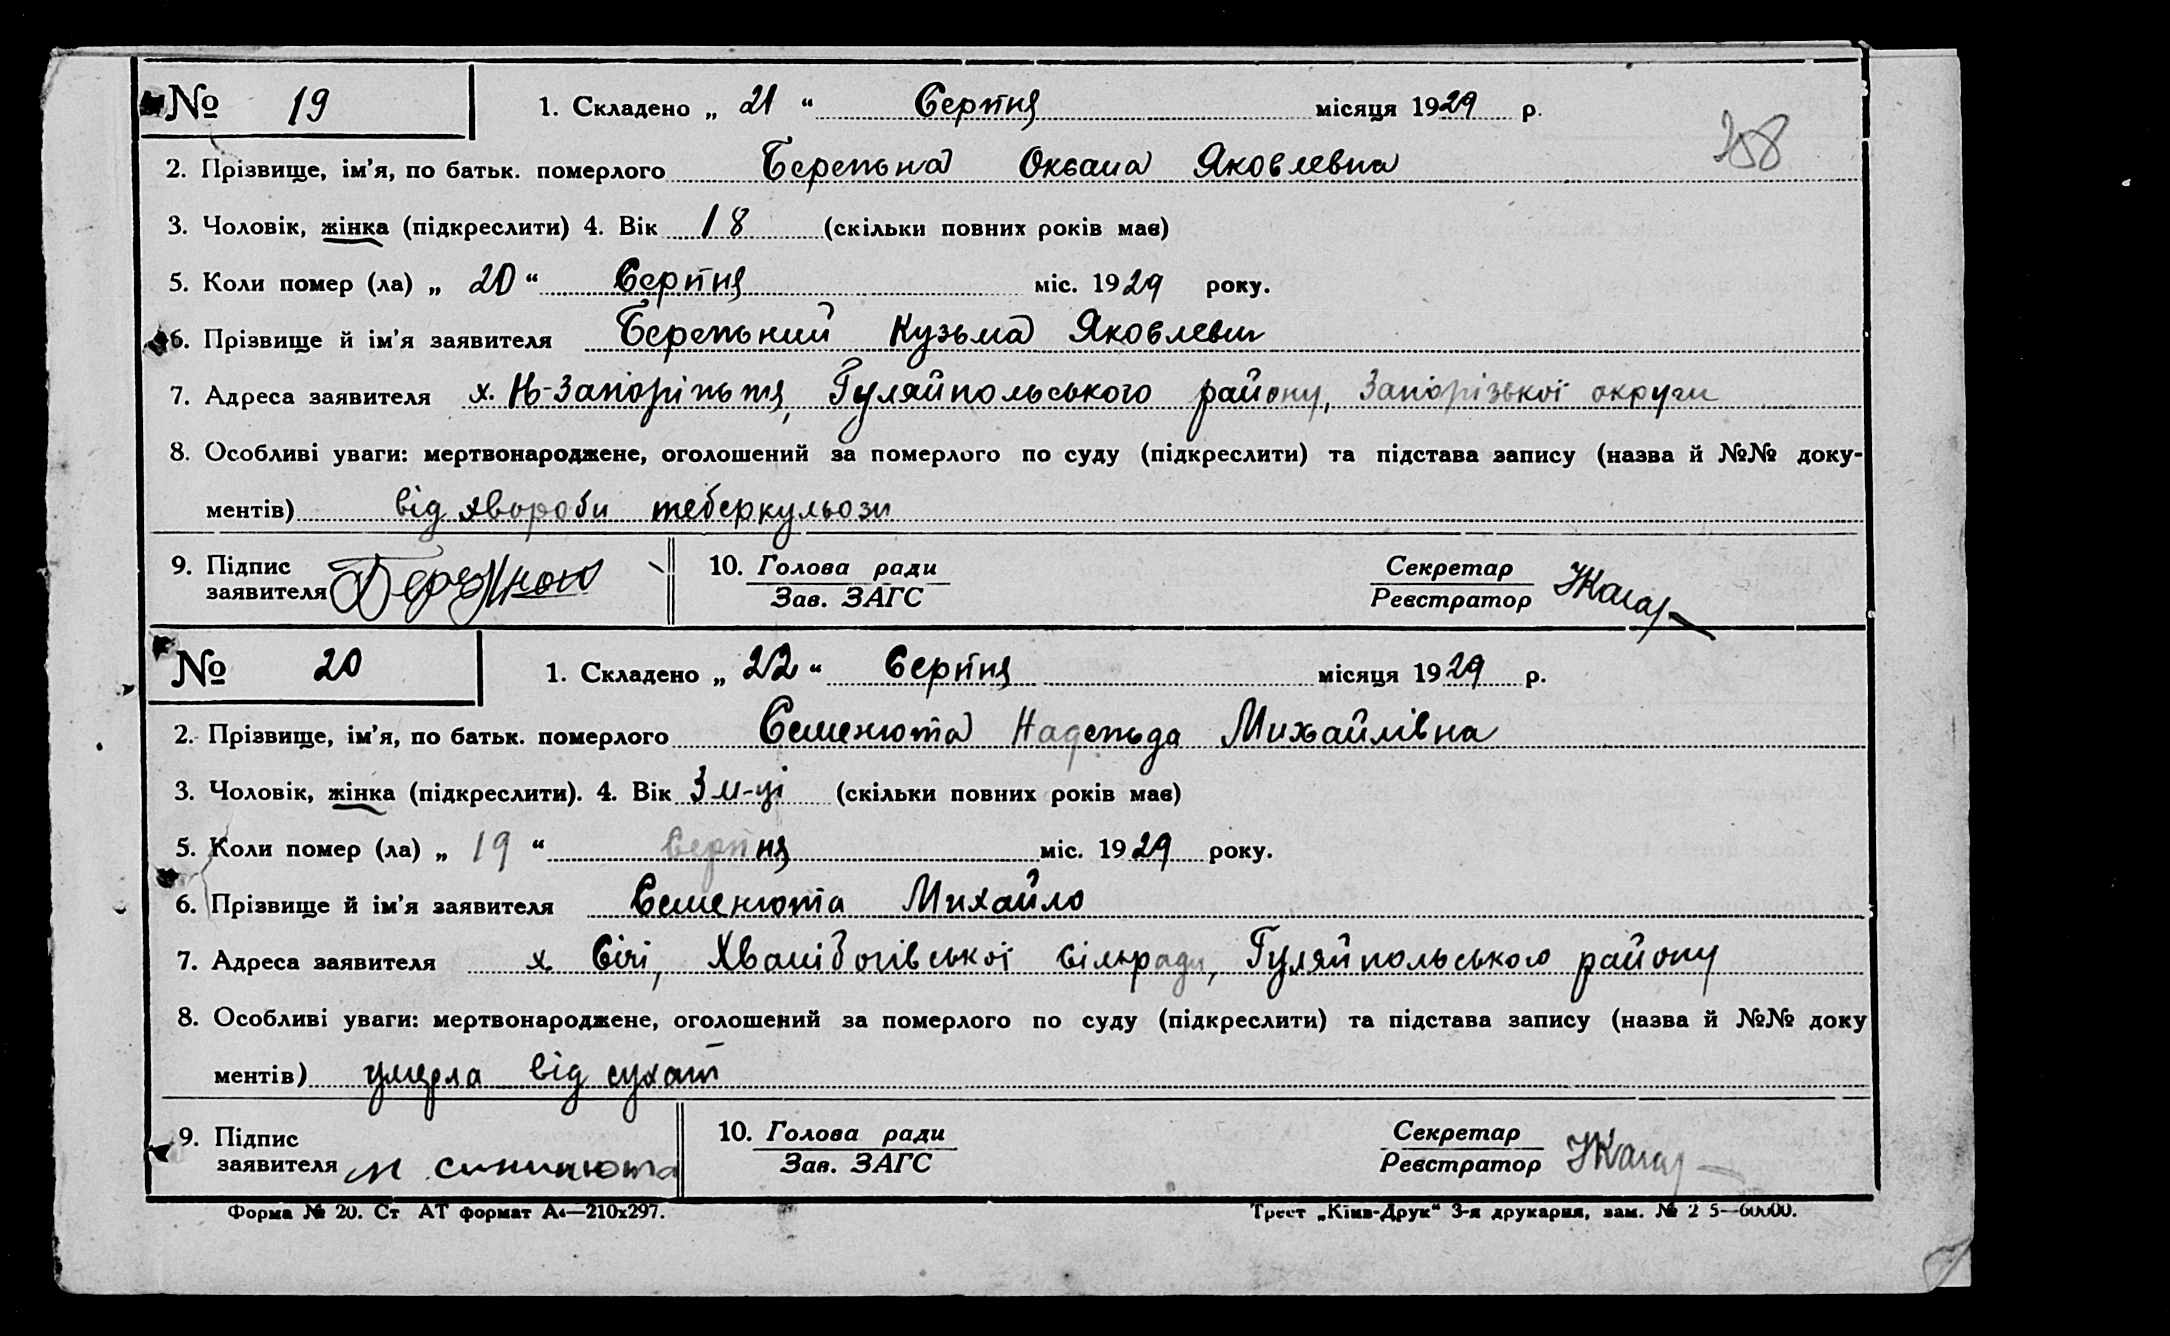 № 19 1. Складено „ 21 “ Серпня місяця 1929 р.
2. Прізвище, ім'я, по батьк. померлого Бережна Оксана Яковлевна
3. Чоловік, жінка (підкреслити) 4. Вік 18 (скільки повних років має)
5. Коли помер (ла) „ 20 “ Серпня міс. 1929 року.
6. Прізвище й ім'я заявителя Бережний Кузьма Яковлевич
7. Адреса заявителя х. Н-Запоріжжя, Гуляйпольського району, Запорізької округи
8. Особливі уваги: мертвонароджене, оголошений за померлого по суду (підкреслити) та підстава запису (назва й №№ доку-
ментів) від хвороби теберкульози
9. Підпис 10. Голова ради Секретар
заявителя Бережной Зав. ЗАГС Реєстратор
№ 20 1. Складено „ 22 “ Серпня місяця 1929 р.
2. Прізвище, ім'я, по батьк. померлого Семенюта Надежда Михайлівна
3. Чоловік, жінка (підкреслити). 4. Вік 3 м-ці (скільки повних років має)
5. Коли помер (ла) „ 19 “ Серпня міс. 1929 року.
6. Прізвище й ім'я заявителя Семенюта Михайло
7. Адреса заявителя х. Січі, сільради, Гуляйпольського району
8. Особливі уваги: мертвонароджене, оголошений за померлого по суду (підкреслити) та підстава запису (назва й №№ доку
ментів) умерла від сухат
9. Підпис 10. Голова ради Секретар
заявителя М Зав. ЗАГС Реєстратор
Форма № 20. Ст АТ формат А4—210х297. Трест „Київ-Друк“ 3-я друкарня, зам. № 2 5—60000.